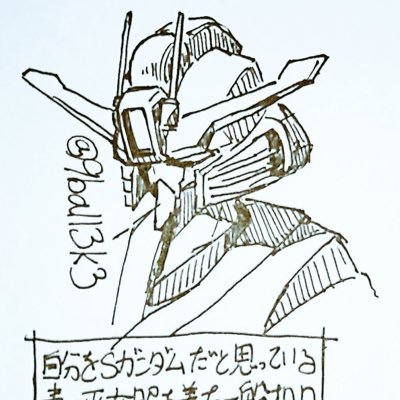 @9ball3k3
自分をSガンダムだと思っている
を着た一般